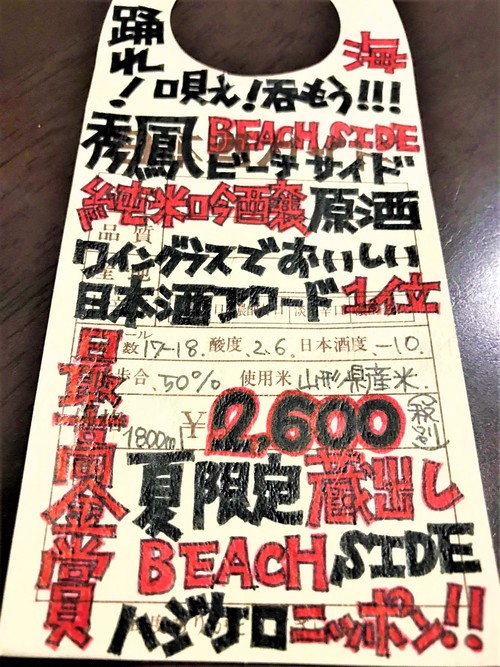 踊れ！唄え！呑もう!!!
秀鳳 BEACH SIDE
ビーチサイド
純米吟醸原酒
品質
ワイングラスでおいしい
日本酒アワード1位
数17-18. 酸度.2.6. 日本酒度.-10.
歩合.50% 使用米.山形県産米.
1800ml ¥2,600 (税別)
最高金賞
夏限定蔵出し
BEACH SIDE
ハジケロニッポン!!